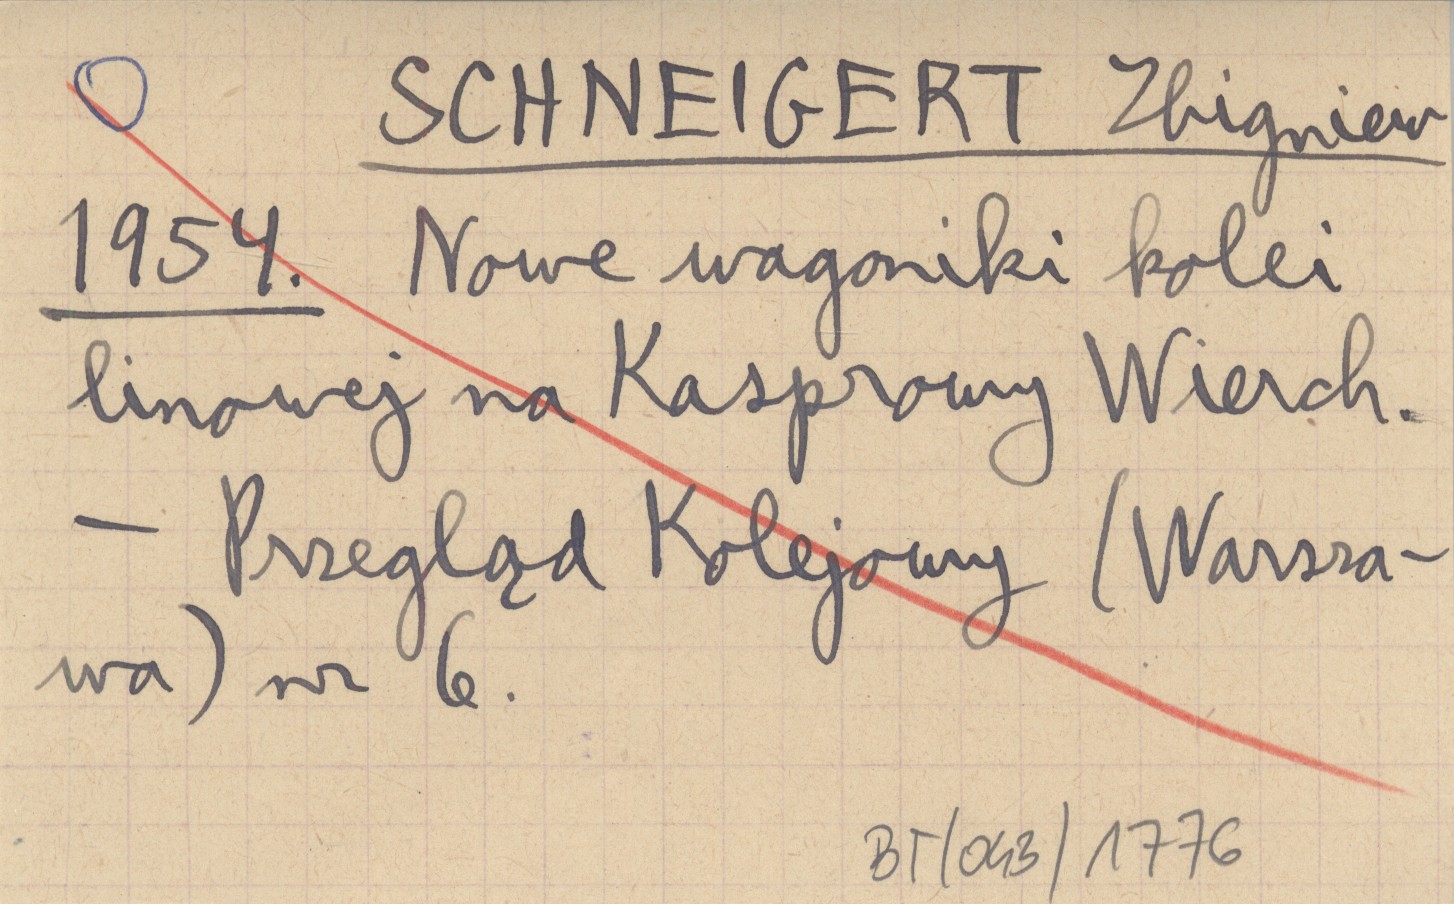 SCHNEIGERT Zbigniew
1954. Nowe wagoniki kolei
linowej na Kasprowy Wierch.
— Przegląd Kolejowy (Warsza-
wa) nr 6.
BT/043/1776